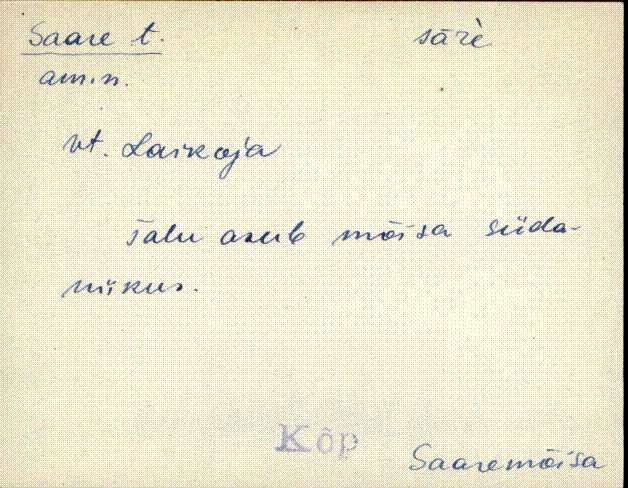 Saare t. säŕe
am.n.
vt. Laikoja
Talu asub mõisa süda-
mikus.
Kõp
Saaremõisa